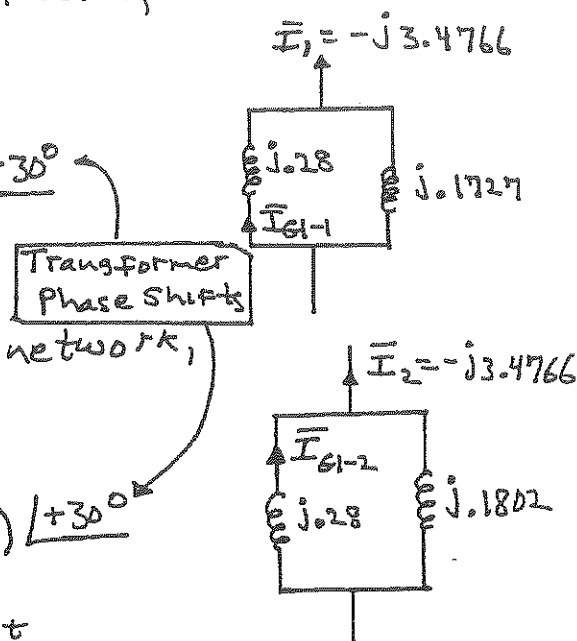 Ī₁ = -j3.4766
30°
j.28
j.1727
Ī_G1-1
Transformer
Phase Shifts
network,
Ī₂ = -j3.4766
Ī_G1-2
) /+30°
j.28
j.1802
t